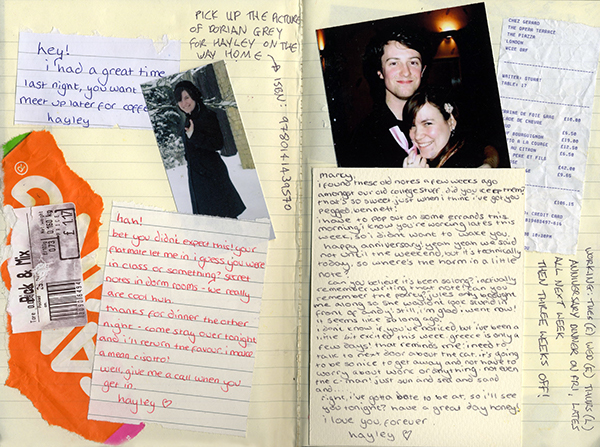 hey!
i had a great time
last night, you want to
meet up later for coffee
hayley
PICK UP THE PICTURE
OF DORIAN GREY
FOR HAYLEY ON THE
WAY HOME
ISBN: 9780141439570
Pick & Mix
hah!
bet you didn't expect this! your
flatmate let me in, i guess you were
in class or something? secret
notes in dorm rooms - we really
are cool huh.
thanks for dinner the other
night - come stay over tonight
and i'll return the favour, i make
a mean risotto!
well, give me a call when you
get in.
hayley
CHEZ GERARD
THE OPERA TERRACE
THE PIAZZA
LONDON
WC2E
WAITER: STUART
TABLE: 17
i found these old notes a few weeks ago
amongst our old college stuff. did you keep them?
that's so sweet, just when i think i've got you
pegged, bennett!
i have to pop out on some errands this
morning, i know you're working lates this
week, so i didn't want to wake you.
happy anniversary! yeah yeah we said
not until the weekend, but it's technically
today, so where's the harm in a little
note?
can you believe it's been so long? i actually
remember writing that note! can you
remember the party? jules only brought
me along so she would look good in
front of andy! still, i'm glad i went now!
it seems like so long ago.
i don't know if you've noticed, but i've been a
little bit excited this week. greece is only a
few days! that reminds me, i need to
talk to next door about the cat. it's going
to be so nice to get away and not have to
worry about work or anything. not even
just sun and sea and sand
and...
right, i've gotta go to be at, so i'll see
you tonight? have a great day honey!
i love you, forever
hayley
WORKING TUES (E) WED (E) THURS (L)
ANNIVERSARY DINNER ON FRI, LATES
ALL NEXT WEEK
THEN THREE WEEKS OFF!